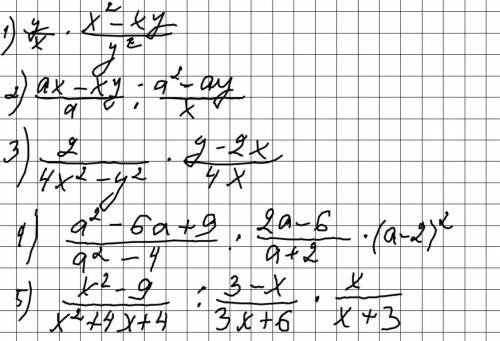 1) y/x · (x² - xy)/y²
2) (ax - xy)/a : (a² - ay)/x
3) 2/(4x² - y²) · (y - 2x)/(4x)
4) (a² - 6a + 9)/(a² - 4) : (2a - 6)/(a + 2) · (a - 2)²
5) (x² - 9)/(x² + 4x + 4) : (3 - x)/(3x + 6) · x/(x + 3)